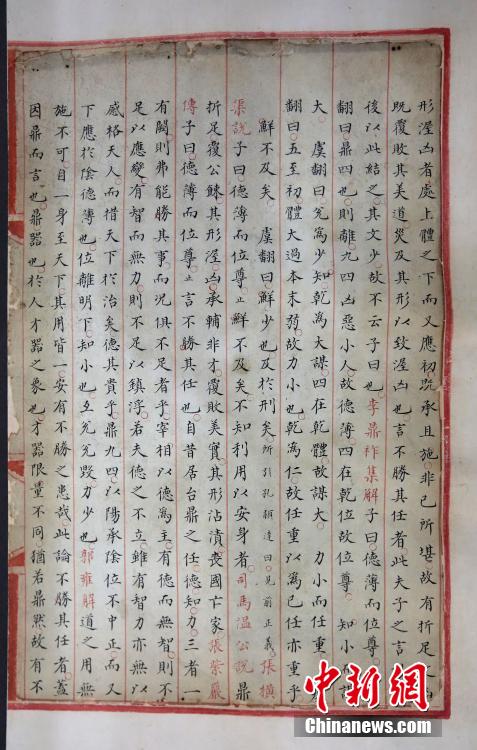 形渥凶者處上體之下而又應初既承且施非已所堪故有折足
既覆敗其美道災及其形以致渥凶也言不勝其任者此夫子之言
後以此結之其文少故不云子曰也李鼎祚集解子曰德薄而位尊
翻曰鼎四也則離九四凶惡小人故德薄四在乾位故位尊 知小而謀
大 虞翻曰兌為少知乾為大謀四在乾體故謀大 力小而任重
翻曰五至初體大過本末弱故力小也乾為仁故任重以為已任亦重乎
鮮不及矣 虞翻曰鮮少也及於刑矣所引孔穎達曰見前正義張橫
渠說子曰德薄而位尊止鮮不及矣不知利用以安身者司馬溫公說鼎
折足覆公餗其形渥凶承輔非才覆敗美實其形沾漬喪國亡家張紫巖
傳子曰德薄而位尊止言不勝其任也自昔居台鼎之任德知力三者一
有闕則弗能勝其事而況俱不足者乎宰相以德為主有德而無智則不
足以應變有智而無力則不足以鎮浮若夫德之不立雖有智力亦無以
感格天人而措天下於治矣德其貴乎鼎九四以陽承陰位不中正而又
下應於陰德薄也位離明下知小也互兌兌毀力少也郭雍解道之用無
施不可自一身至天下其用皆一安有不勝之患哉此論不勝其任者蓋
因鼎而言也鼎器也於人才器之象也才器限量不同猶若鼎然故有不
中新網
Chinanews.com